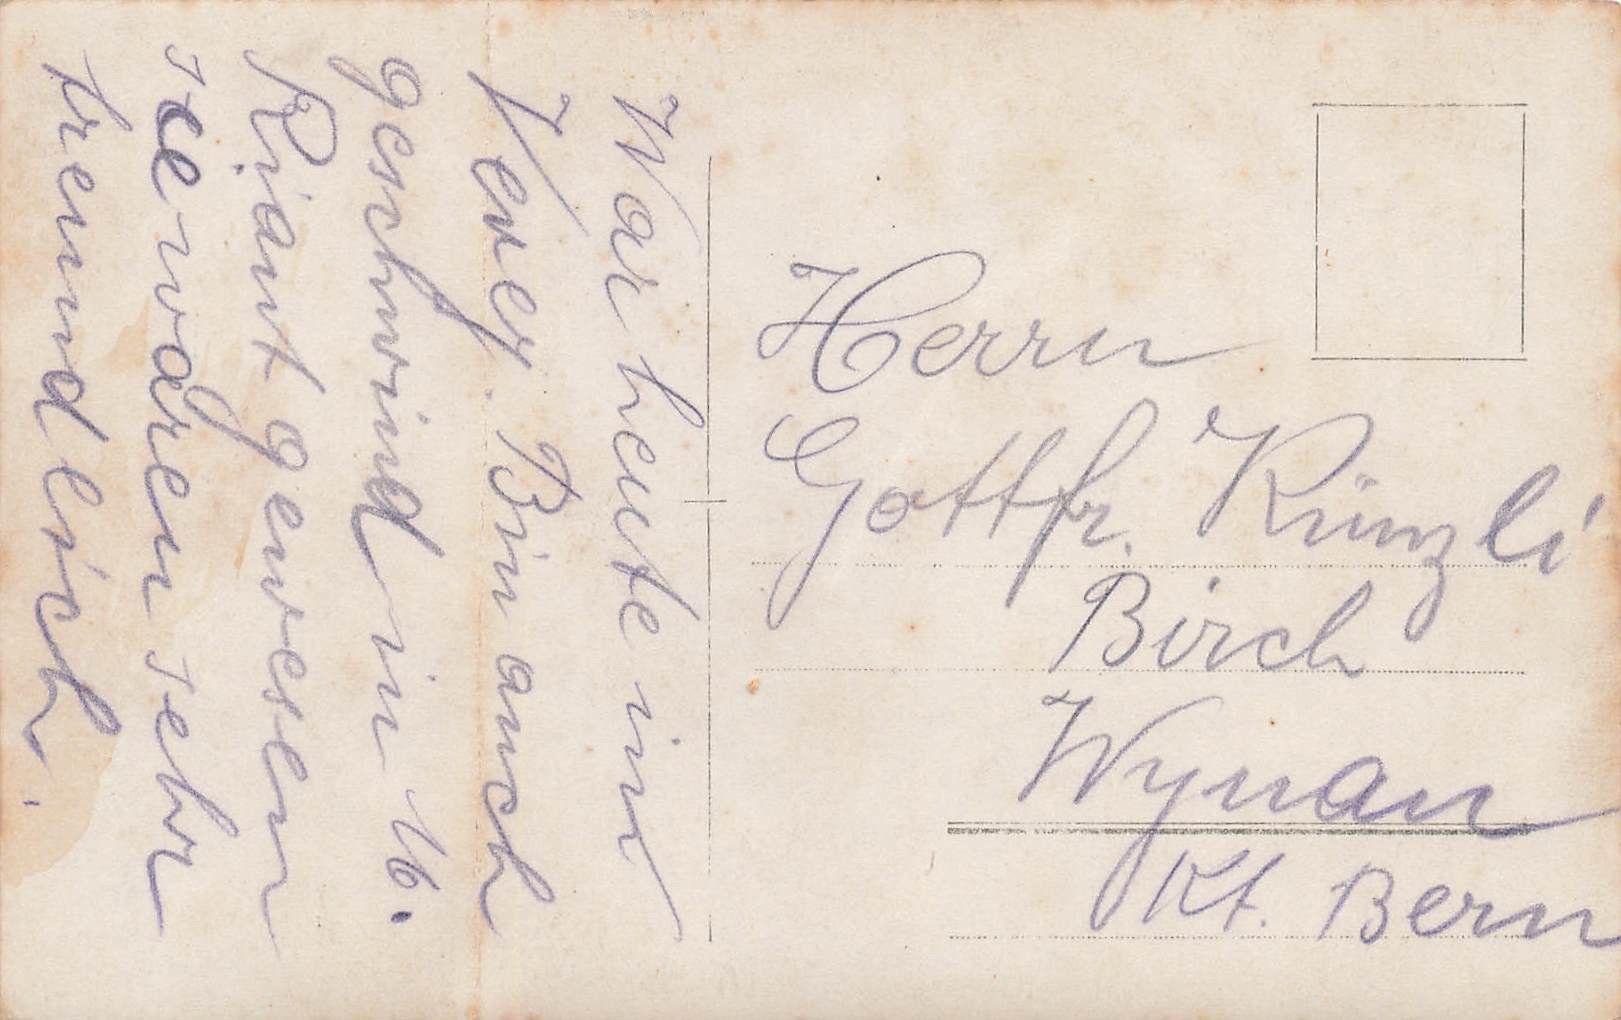 War heute in
Vevey. Bin auch
geschwind in 16.
Riant gewesen
sie waren sehr
freundlich.
Herrn
Gottfr. Künzli
Birch
Wynau
Kt. Bern